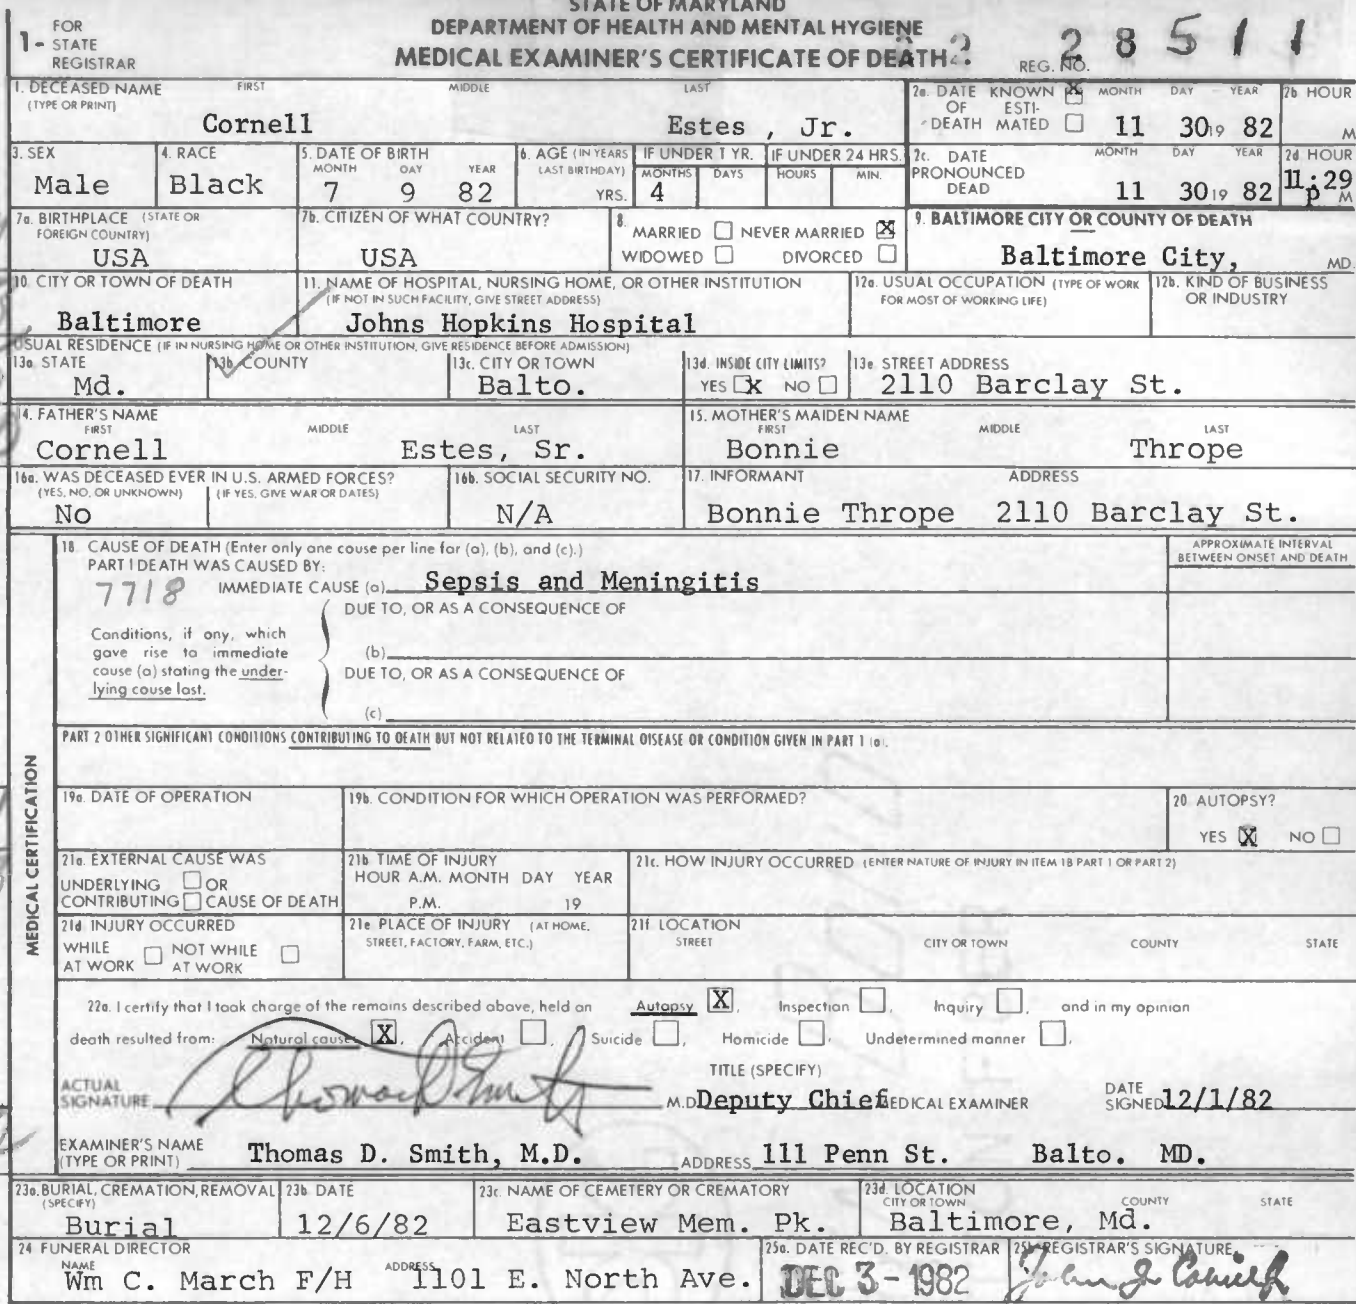 STATE OF MARYLAND
DEPARTMENT OF HEALTH AND MENTAL HYGIENE
MEDICAL EXAMINER'S CERTIFICATE OF DEATH
1- FOR STATE REGISTRAR
REG. NO. 28511
1. DECEASED NAME (TYPE OR PRINT) FIRST MIDDLE LAST
Cornell Estes, Jr.
2a. DATE OF DEATH KNOWN X ESTIMATED MONTH DAY YEAR
11 30 19 82
2b HOUR M
3. SEX
Male
4. RACE
Black
5. DATE OF BIRTH MONTH DAY YEAR
7 9 82
6. AGE (IN YEARS LAST BIRTHDAY) YRS.
IF UNDER 1 YR. MONTHS DAYS
4
IF UNDER 24 HRS. HOURS MIN.
2c. DATE PRONOUNCED DEAD MONTH DAY YEAR
11 30 19 82
2d HOUR
11:29 p M
7a. BIRTHPLACE (STATE OR FOREIGN COUNTRY)
USA
7b. CITIZEN OF WHAT COUNTRY?
USA
8. MARRIED NEVER MARRIED X
WIDOWED DIVORCED
9. BALTIMORE CITY OR COUNTY OF DEATH
Baltimore City, MD.
10. CITY OR TOWN OF DEATH
Baltimore
11. NAME OF HOSPITAL, NURSING HOME, OR OTHER INSTITUTION
(IF NOT IN SUCH FACILITY, GIVE STREET ADDRESS)
Johns Hopkins Hospital
12a. USUAL OCCUPATION (TYPE OF WORK FOR MOST OF WORKING LIFE)
12b. KIND OF BUSINESS OR INDUSTRY
USUAL RESIDENCE (IF IN NURSING HOME OR OTHER INSTITUTION, GIVE RESIDENCE BEFORE ADMISSION)
13a. STATE
Md.
13b. COUNTY
13c. CITY OR TOWN
Balto.
13d. INSIDE CITY LIMITS?
YES X NO
13e STREET ADDRESS
2110 Barclay St.
14. FATHER'S NAME FIRST MIDDLE LAST
Cornell Estes, Sr.
15. MOTHER'S MAIDEN NAME FIRST MIDDLE LAST
Bonnie Thrope
16a. WAS DECEASED EVER IN U.S. ARMED FORCES?
(YES, NO, OR UNKNOWN) (IF YES, GIVE WAR OR DATES)
No
16b. SOCIAL SECURITY NO.
N/A
17. INFORMANT ADDRESS
Bonnie Thrope 2110 Barclay St.
MEDICAL CERTIFICATION
18. CAUSE OF DEATH (Enter only one cause per line for (a), (b), and (c).)
APPROXIMATE INTERVAL BETWEEN ONSET AND DEATH
PART I DEATH WAS CAUSED BY:
7718
IMMEDIATE CAUSE (a) Sepsis and Meningitis
DUE TO, OR AS A CONSEQUENCE OF
Conditions, if any, which gave rise to immediate cause (a) stating the underlying cause last.
(b)
DUE TO, OR AS A CONSEQUENCE OF
(c)
PART 2 OTHER SIGNIFICANT CONDITIONS CONTRIBUTING TO DEATH BUT NOT RELATED TO THE TERMINAL DISEASE OR CONDITION GIVEN IN PART 1 (a).
19a. DATE OF OPERATION
19b. CONDITION FOR WHICH OPERATION WAS PERFORMED?
20 AUTOPSY?
YES X NO
21a. EXTERNAL CAUSE WAS
UNDERLYING OR
CONTRIBUTING CAUSE OF DEATH
21b TIME OF INJURY
HOUR A.M. MONTH DAY YEAR
P.M. 19
21c. HOW INJURY OCCURRED (ENTER NATURE OF INJURY IN ITEM 18 PART 1 OR PART 2)
21d INJURY OCCURRED
WHILE AT WORK NOT WHILE AT WORK
21e PLACE OF INJURY (AT HOME, STREET, FACTORY, FARM, ETC.)
21f. LOCATION
STREET CITY OR TOWN COUNTY STATE
22a. I certify that I took charge of the remains described above, held an Autopsy X, Inspection , Inquiry , and in my opinion
death resulted from: Natural causes X, Accident , Suicide , Homicide , Undetermined manner .
TITLE (SPECIFY)
ACTUAL SIGNATURE Thomas D Smith M.D. Deputy Chief MEDICAL EXAMINER DATE SIGNED 12/1/82
EXAMINER'S NAME (TYPE OR PRINT) Thomas D. Smith, M.D. ADDRESS 111 Penn St. Balto. MD.
23a. BURIAL, CREMATION, REMOVAL (SPECIFY)
Burial
23b. DATE
12/6/82
23c. NAME OF CEMETERY OR CREMATORY
Eastview Mem. Pk.
23d. LOCATION CITY OR TOWN COUNTY STATE
Baltimore, Md.
24 FUNERAL DIRECTOR
NAME Wm C. March F/H ADDRESS 1101 E. North Ave.
25a. DATE REC'D. BY REGISTRAR
DEC 3 - 1982
25b. REGISTRAR'S SIGNATURE